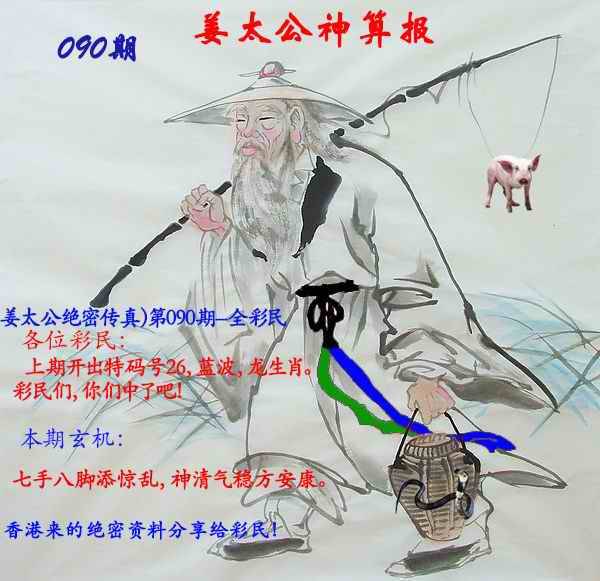 姜太公神算报
090期
姜太公绝密传真)第090期—全彩民
各位彩民:
上期开出特码号26,蓝波,龙生肖。
彩民们,你们中了吧!
本期玄机:
七手八脚添惊乱,神清气稳方安康。
香港来的绝密资料分享给彩民!